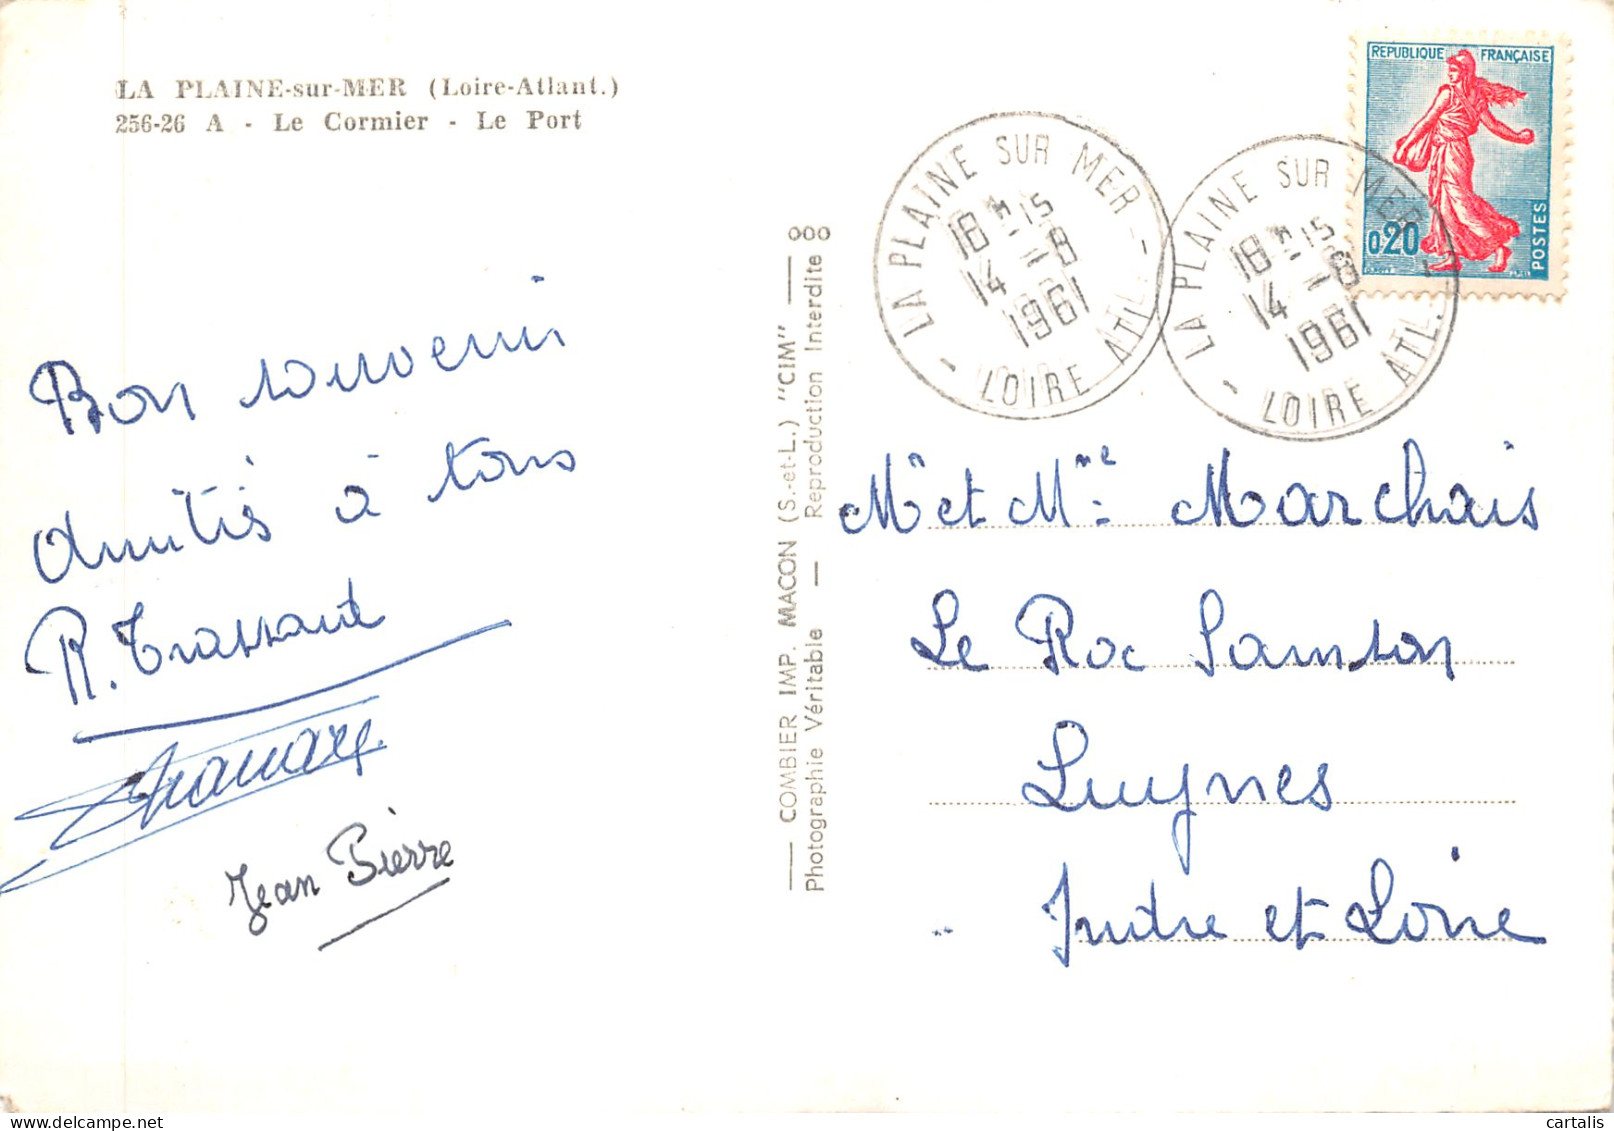 LA PLAINE-sur-MER (Loire-Atlant.)
256-26 A - Le Cormier - Le Port
Bon souvenir
Amitiés à tous
R. Trassard
Jean Pierre
— COMBIER IMP. MACON (S.-et-L.) "CIM" —
Photographie Véritable — Reproduction Interdite
LA PLAINE SUR MER
18 H 15
14 - 8
1961
- LOIRE ATL. -
LA PLAINE SUR MER
18 H 15
14 - 8
1961
- LOIRE ATL. -
REPUBLIQUE FRANÇAISE
0,20
POSTES
Mr et Mme Marchais
Le Roc Samson
Luynes
Indre et Loire
cartalis